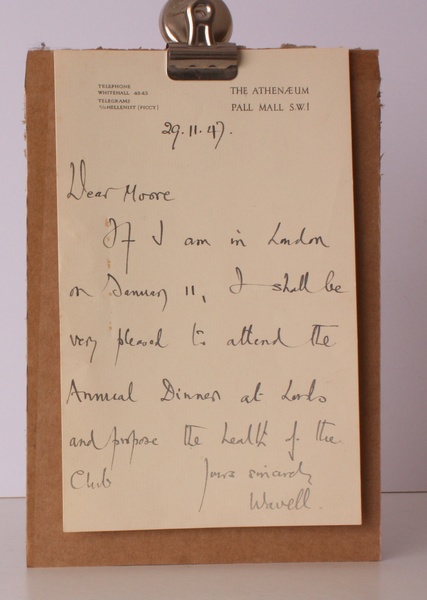 TELEPHONE
WHITEHALL 4843
TELEGRAMS
HELLENIST (PICCY)
THE ATHENÆUM
PALL MALL S.W.1
29.11.47.
Dear Moore
If I am in London
on January 11, I shall be
very pleased to attend the
Annual Dinner at Lords
and propose the health of the
Club
Yours sincerely
Wavell.